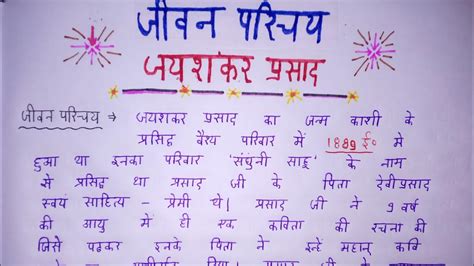 जीवन परिचय
जयशंकर प्रसाद
जीवन परिचय → जयशंकर प्रसाद का जन्म काशी के
प्रसिद्ध वैश्य परिवार में 1889 ई० में
हुआ था इनका परिवार 'संघुनी साहू' के नाम
से प्रसिद्ध था प्रसाद जी के पिता देवीप्रसाद
स्वयं साहित्य - प्रेमी थे। प्रसाद जी ने 9 वर्ष
की आयु में ही एक कविता की रचना की
जिसे पढ़कर इनके पिता ने इन्हें महान् कवि